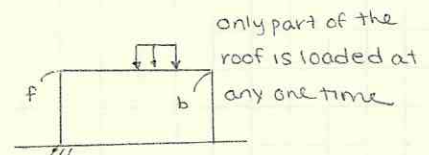 only part of the
roof is loaded at
any one time
f
b